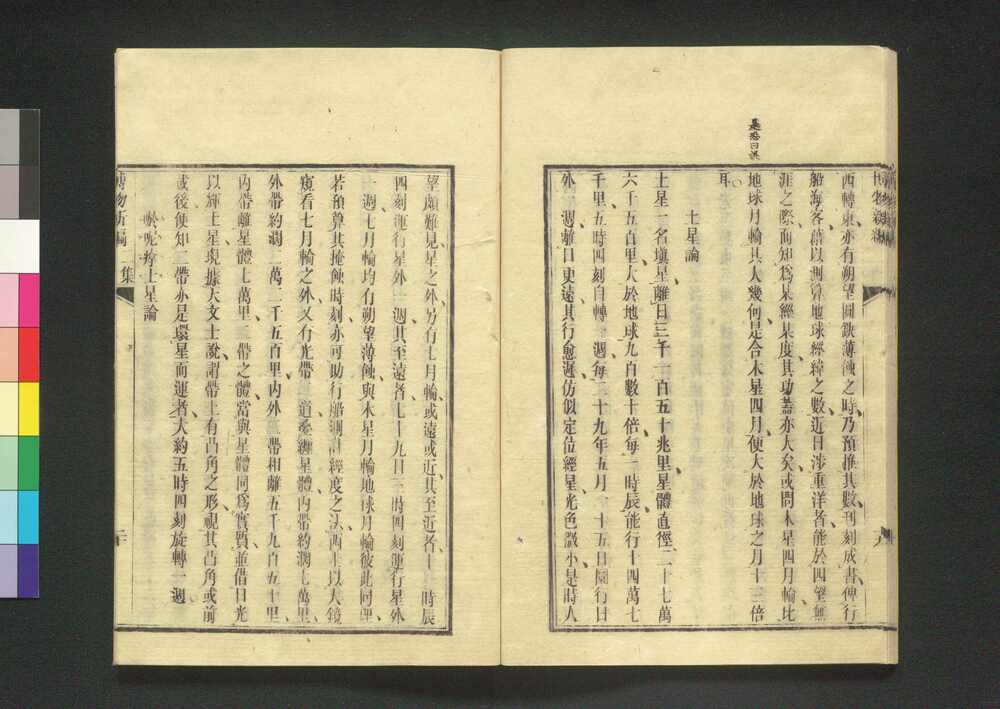 是恐日誤
西轉東亦有朔望圓缺薄蝕之時乃預推其數刊刻成書俾行
船海客藉以測算地球經緯之數近日涉重洋者能於四望無
涯之際而知爲某經某度其功蓋亦大矣或問木星四月輪比
地球月輪其大幾何是合木星四月便大於地球之月十三倍
耳
土星論
土星一名塡星離日三千一百五十兆里星體直徑二十七萬
六千五百里大於地球九百數十倍每一時辰能行十四萬七
千里五時四刻自轉一週每二十九年五月二十五日圜行日
外一週離日更遠其行愈遲仿似定位經星光色微小是時人
望頗難見星之外另有七月輪或遠或近其至近者十一時辰
四刻運行星外一週其至遠者七十九日三時四刻運行星外
一週七月輪均有朔望薄蝕與木星月輪地球月輪彼此同理
若預算其掩蝕時刻亦可助行船測計經度之法西士以大鏡
窺看七月輪之外又有光帶二道環繞星體內帶約濶七萬里
外帶約濶二萬二千五百里內外二帶相離五千九百五十里
內帶離星體七萬里二帶之體當與星體同爲實質並借日光
以輝土星現據天文士說謂帶上有凸角之形視其凸角或前
或後便知二帶亦是環星而運者大約五時四刻旋轉一週
於呢㾾士星論
博物新編 二集